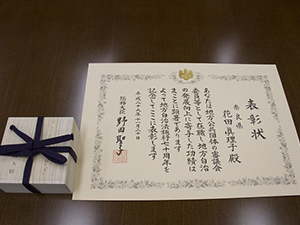 表彰状
奈良県
花田眞理子 殿
あなたは地方公共団体の審議会
委員等として在職し地方自治
の発展向上に寄与した功績は
まことに顕著であります
よって地方自治法施行七十周年を
記念してここに表彰します
平成二十九年十一月二十日
総務大臣 野田聖子